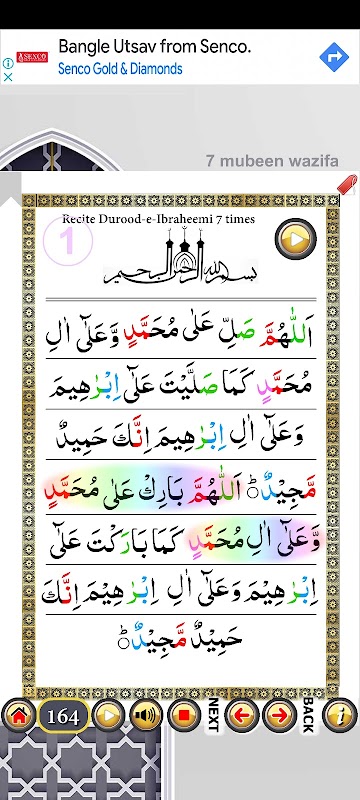 Bangle Utsav from Senco.
SENCO
Senco Gold & Diamonds
7 mubeen wazifa
Recite Durood-e-Ibraheemi 7 times
1
بسم الله الرحمن الرحيم
اَللّٰهُمَّ صَلِّ عَلٰى مُحَمَّدٍ وَّعَلٰٓى اٰلِ
مُحَمَّدٍ كَمَا صَلَّيْتَ عَلٰٓى اِبْرٰهِيْمَ
وَعَلٰٓى اٰلِ اِبْرٰهِيْمَ اِنَّكَ حَمِيْدٌ
مَّجِيْدٌ ؕ اَللّٰهُمَّ بَارِكْ عَلٰى مُحَمَّدٍ
وَّعَلٰٓى اٰلِ مُحَمَّدٍ كَمَا بَارَكْتَ عَلٰٓى
اِبْرٰهِيْمَ وَعَلٰٓى اٰلِ اِبْرٰهِيْمَ اِنَّكَ
حَمِيْدٌ مَّجِيْدٌ ؕ
164
NEXT
BACK
i